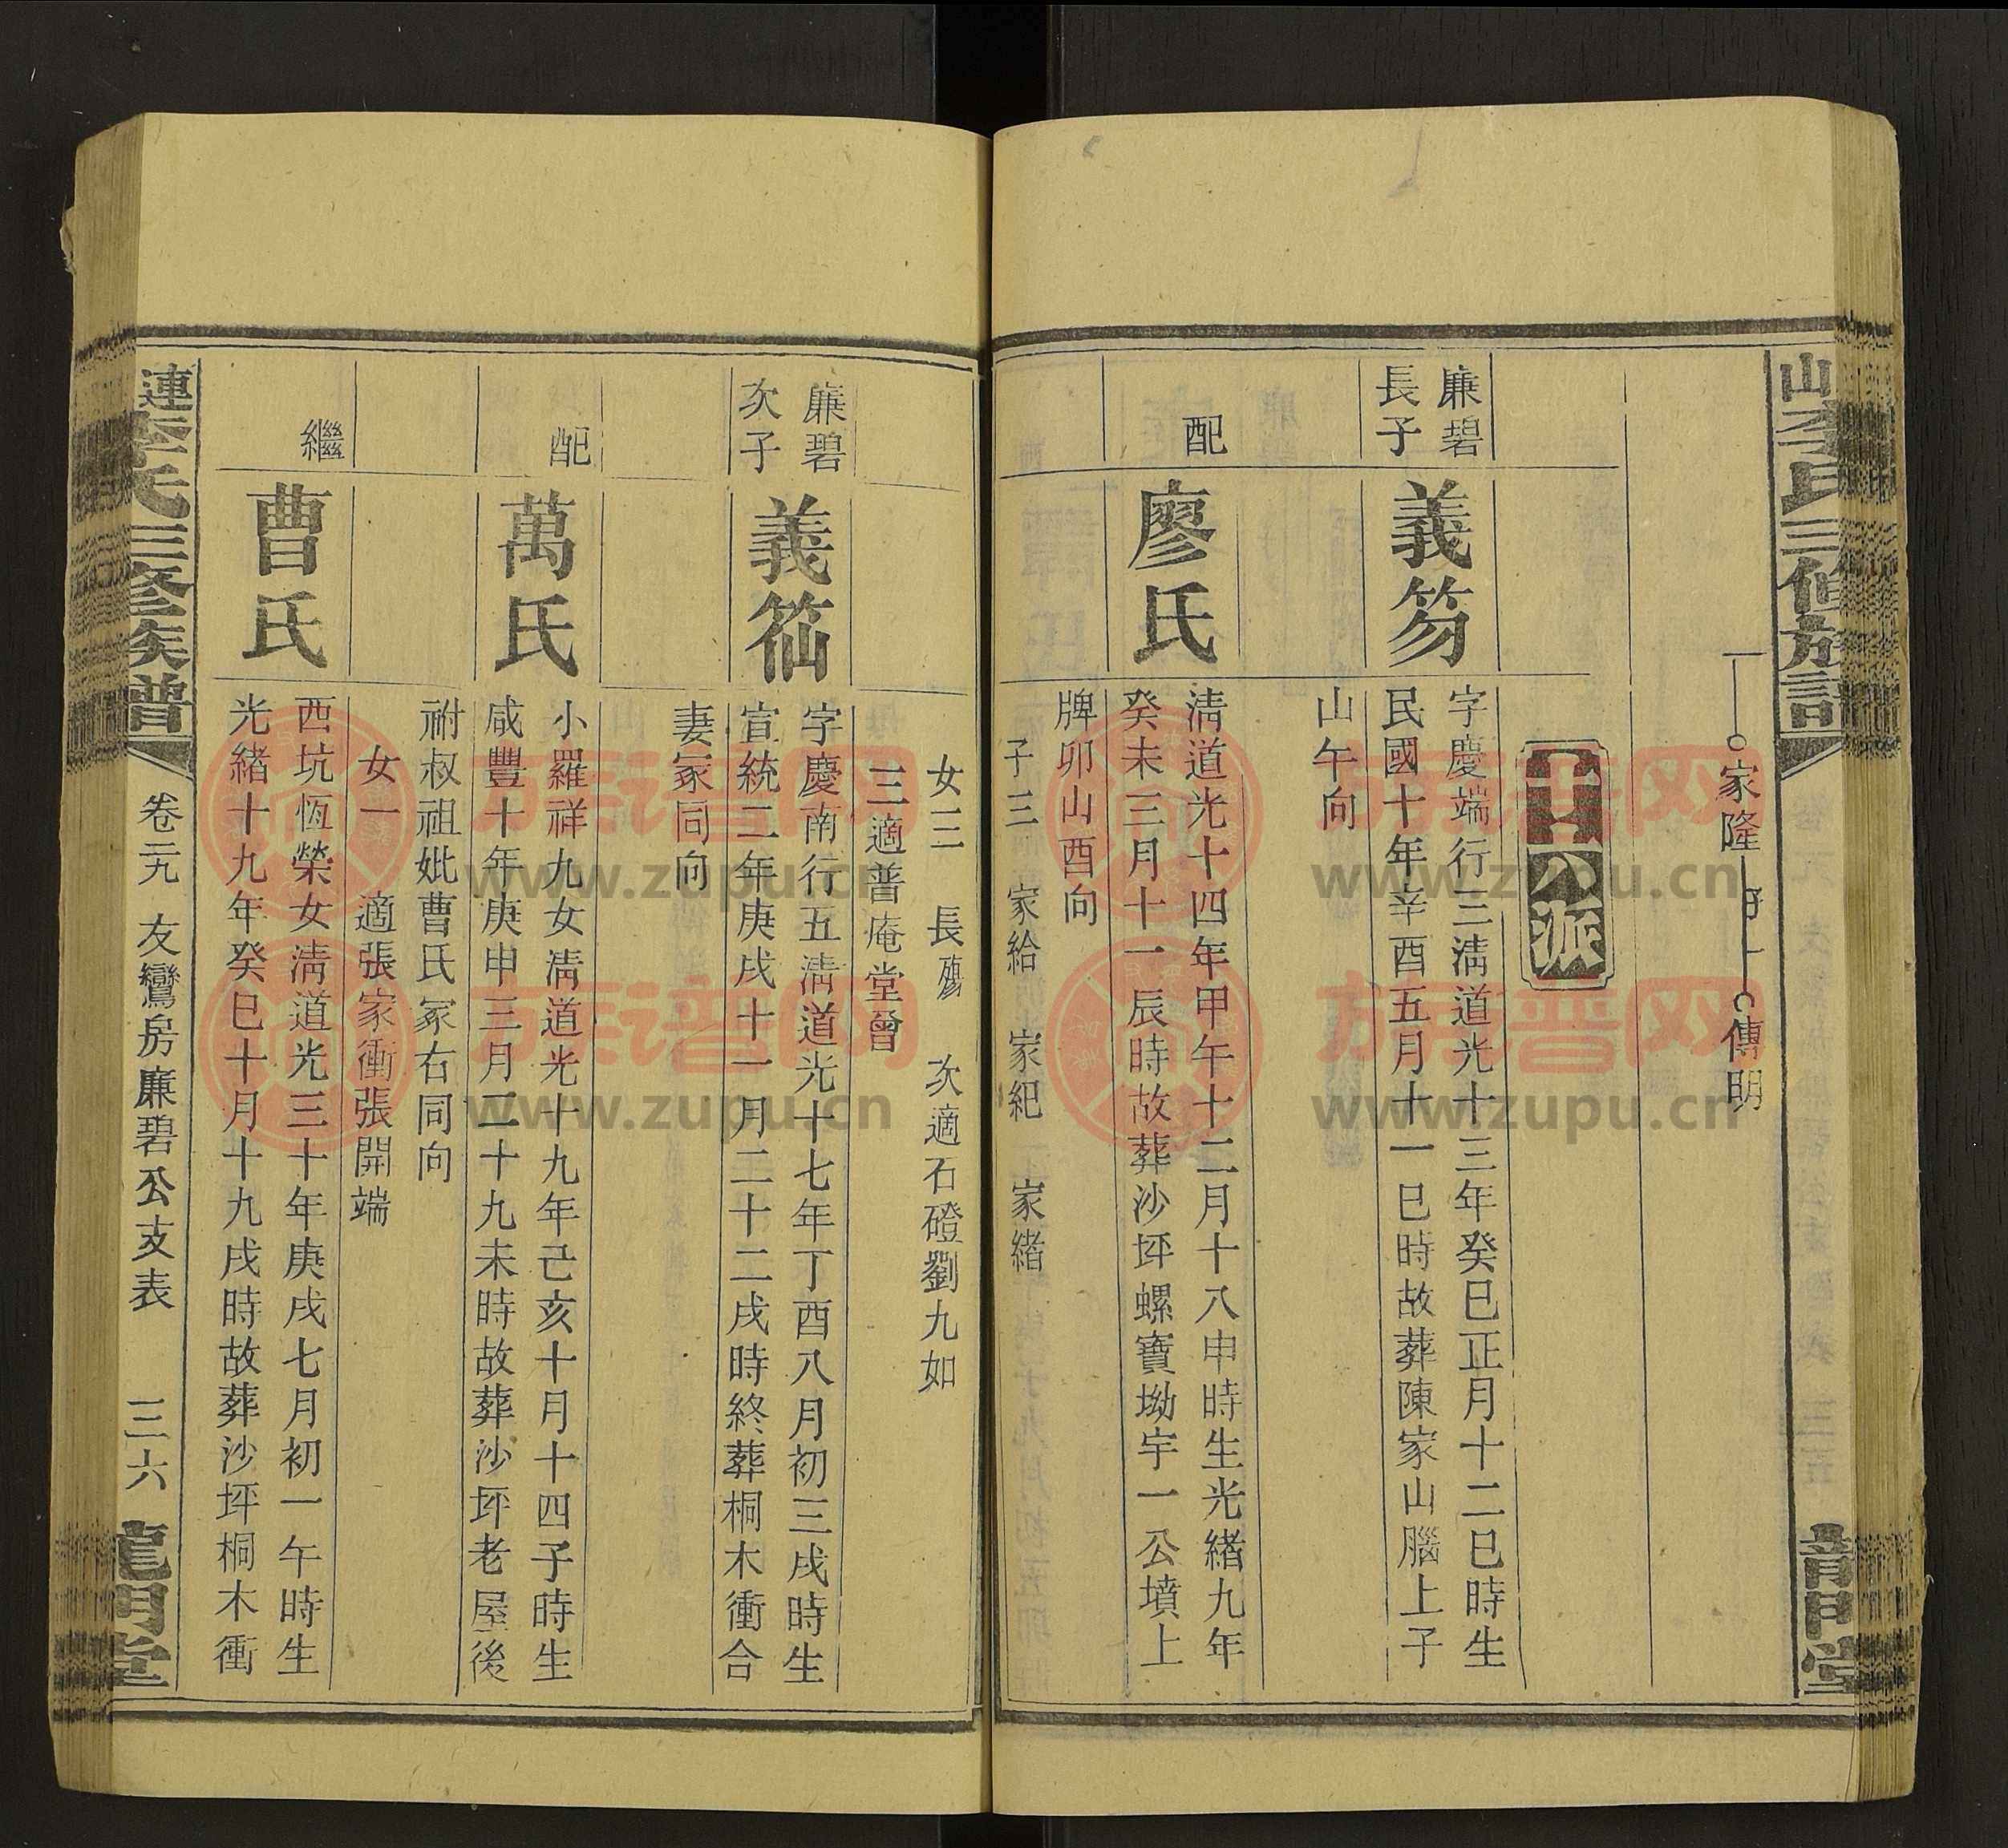 山李氏三修族譜
龍門堂
家隆
傳明
公派
廉碧
長子
義笏
字慶端行三淸道光十三年癸巳正月十二巳時生
民國十年辛酉五月十一巳時故葬陳家山腦上子
山午向
配
廖氏
淸道光十四年甲午十二月十八申時生光緒九年
癸未三月十一辰時故葬沙坪螺寶坳宇一公墳上
牌卯山酉向
子三 家給 家紀 家緒
女三 長殤 次適石磴劉九如
三適普庵堂曾
廉碧
次子
義䇄
字慶南行五淸道光十七年丁酉八月初三戌時生
宣統二年庚戌十一月二十二戌時終葬桐木衝合
妻冢同向
配
萬氏
小羅祥九女淸道光十九年己亥十月十四子時生
咸豐十年庚申三月二十九未時故葬沙坪老屋後
祔叔祖妣曹氏冢右同向
女一 適張家衝張開端
繼
曹氏
西坑恆榮女淸道光三十年庚戌七月初一午時生
光緒十九年癸巳十月十九戌時故葬沙坪桐木衝
連李氏三修族譜
卷二九 友鸞房廉碧公支表 三六
龍門堂
族谱网
www.zupu.cn
族谱网
www.zupu.cn
族谱网
www.zupu.cn
族谱网
www.zupu.cn